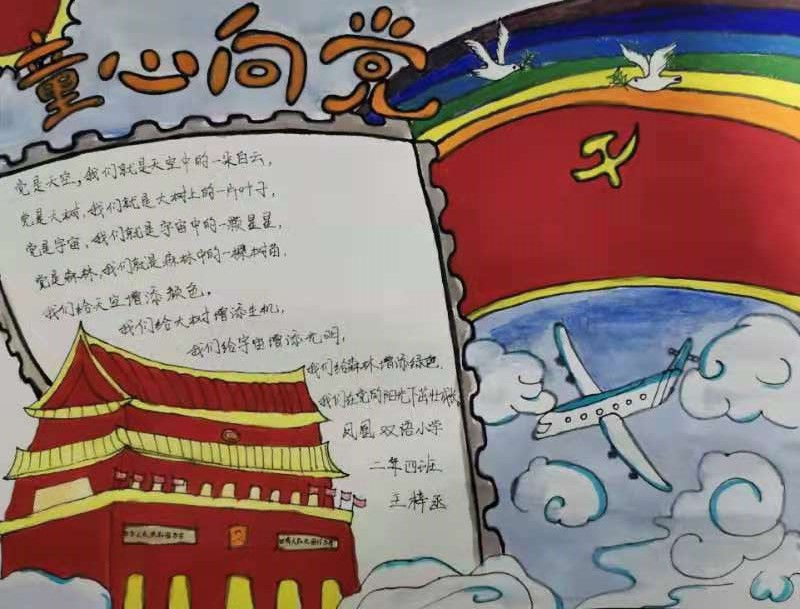 童心向党
党是天空，我们就是天空中的一朵白云，
党是大树，我们就是大树上的一片叶子，
党是宇宙，我们就是宇宙中的一颗星星，
党是森林，我们就是森林中的一棵树苗，
我们给天空增添颜色，
我们给大树增添生机，
我们给宇宙增添光明，
我们给森林增添绿色，
我们在党的阳光下茁壮成长。
凤凰双语小学
二年四班
王梓丞